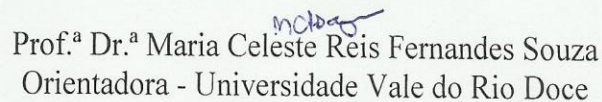 Prof.ª Dr.ª Maria Celeste Reis Fernandes Souza
Orientadora - Universidade Vale do Rio Doce